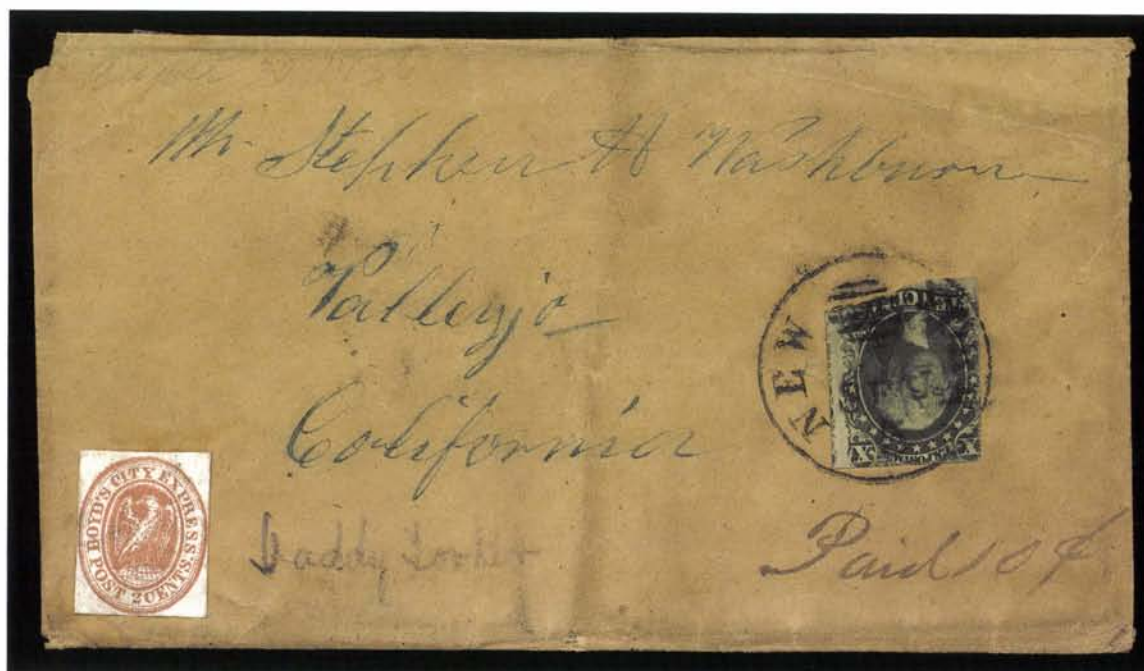 Mr. Stephen H Washburn
Vallejo
California
NEW
X X
BOYD'S CITY EXPRESS
POST 2 CENTS.
Daddy
Paid 10¢